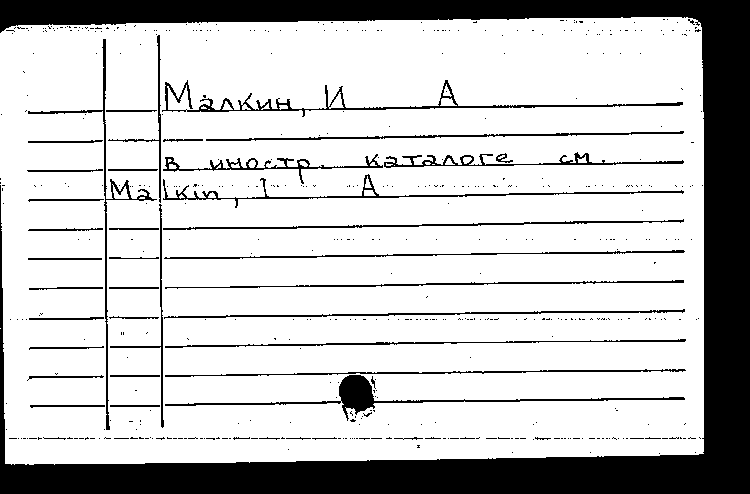 Малкин, И А
в иностр. каталоге см.
Malkin, I A